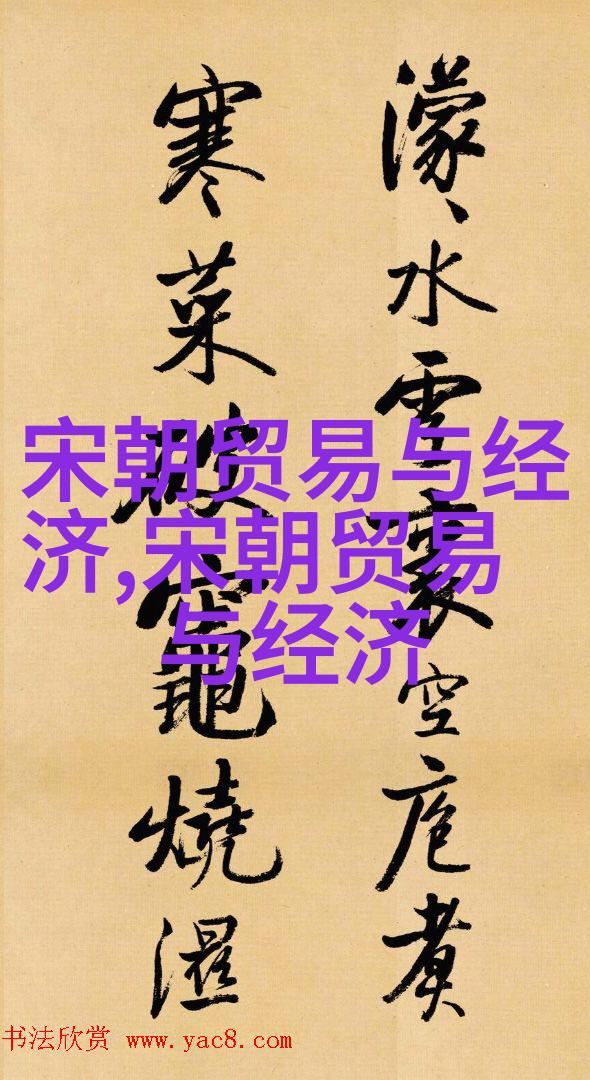 濛〻水雲裏空庖煮
寒菜破竈燒濕
宋朝贸易与经
济,宋朝贸易
与经济
书法欣赏 www.yac8.com